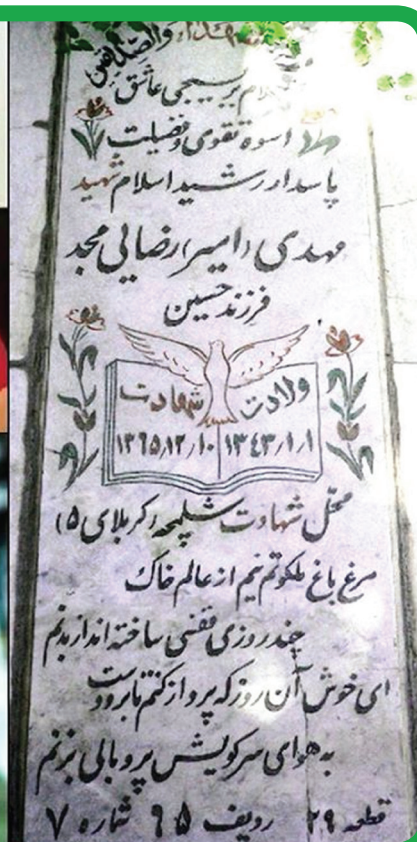 الشهداء والصدیقین
سلام بر بسیجی عاشق
اسوه تقوی و فضیلت
پاسدار رشید اسلام شهید
مهدی (امیر) رضائی مجد
فرزند حسین
ولادت شهادت
۱۳۴۳/۱/۱ ۱۳۶۵/۱۲/۱۰
محل شهادت شلمچه (کربلای ۵)
مرغ باغ ملکوتم نیم از عالم خاک
چند روزی قفسی ساخته اند از بدنم
ای خوش آن روز که پرواز کنم تا بر دوست
به هوای سر کویش پر و بالی بزنم
قطعه ۲۹ ردیف ۶۵ شماره ۷